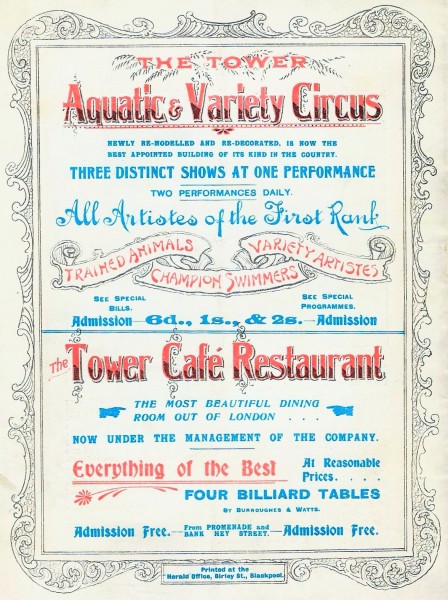 THE TOWER
Aquatic & Variety Circus
NEWLY RE-MODELLED AND RE-DECORATED, IS NOW THE
BEST APPOINTED BUILDING OF ITS KIND IN THE COUNTRY.
THREE DISTINCT SHOWS AT ONE PERFORMANCE
TWO PERFORMANCES DAILY.
All Artistes of the First Rank
TRAINED ANIMALS
VARIETY ARTISTES
CHAMPION SWIMMERS
SEE SPECIAL
BILLS.
SEE SPECIAL
PROGRAMMES.
Admission—6d., 1s., & 2s.—Admission
The Tower Café Restaurant
THE MOST BEAUTIFUL DINING
ROOM OUT OF LONDON . . .
NOW UNDER THE MANAGEMENT OF THE COMPANY.
Everything of the Best
At Reasonable
Prices. . . . .
FOUR BILLIARD TABLES
BY BURROUGHES & WATTS.
Admission Free.—From PROMENADE and
BANK HEY STREET.—Admission Free.
Printed at the
"Herald Office, Birley St., Blackpool.